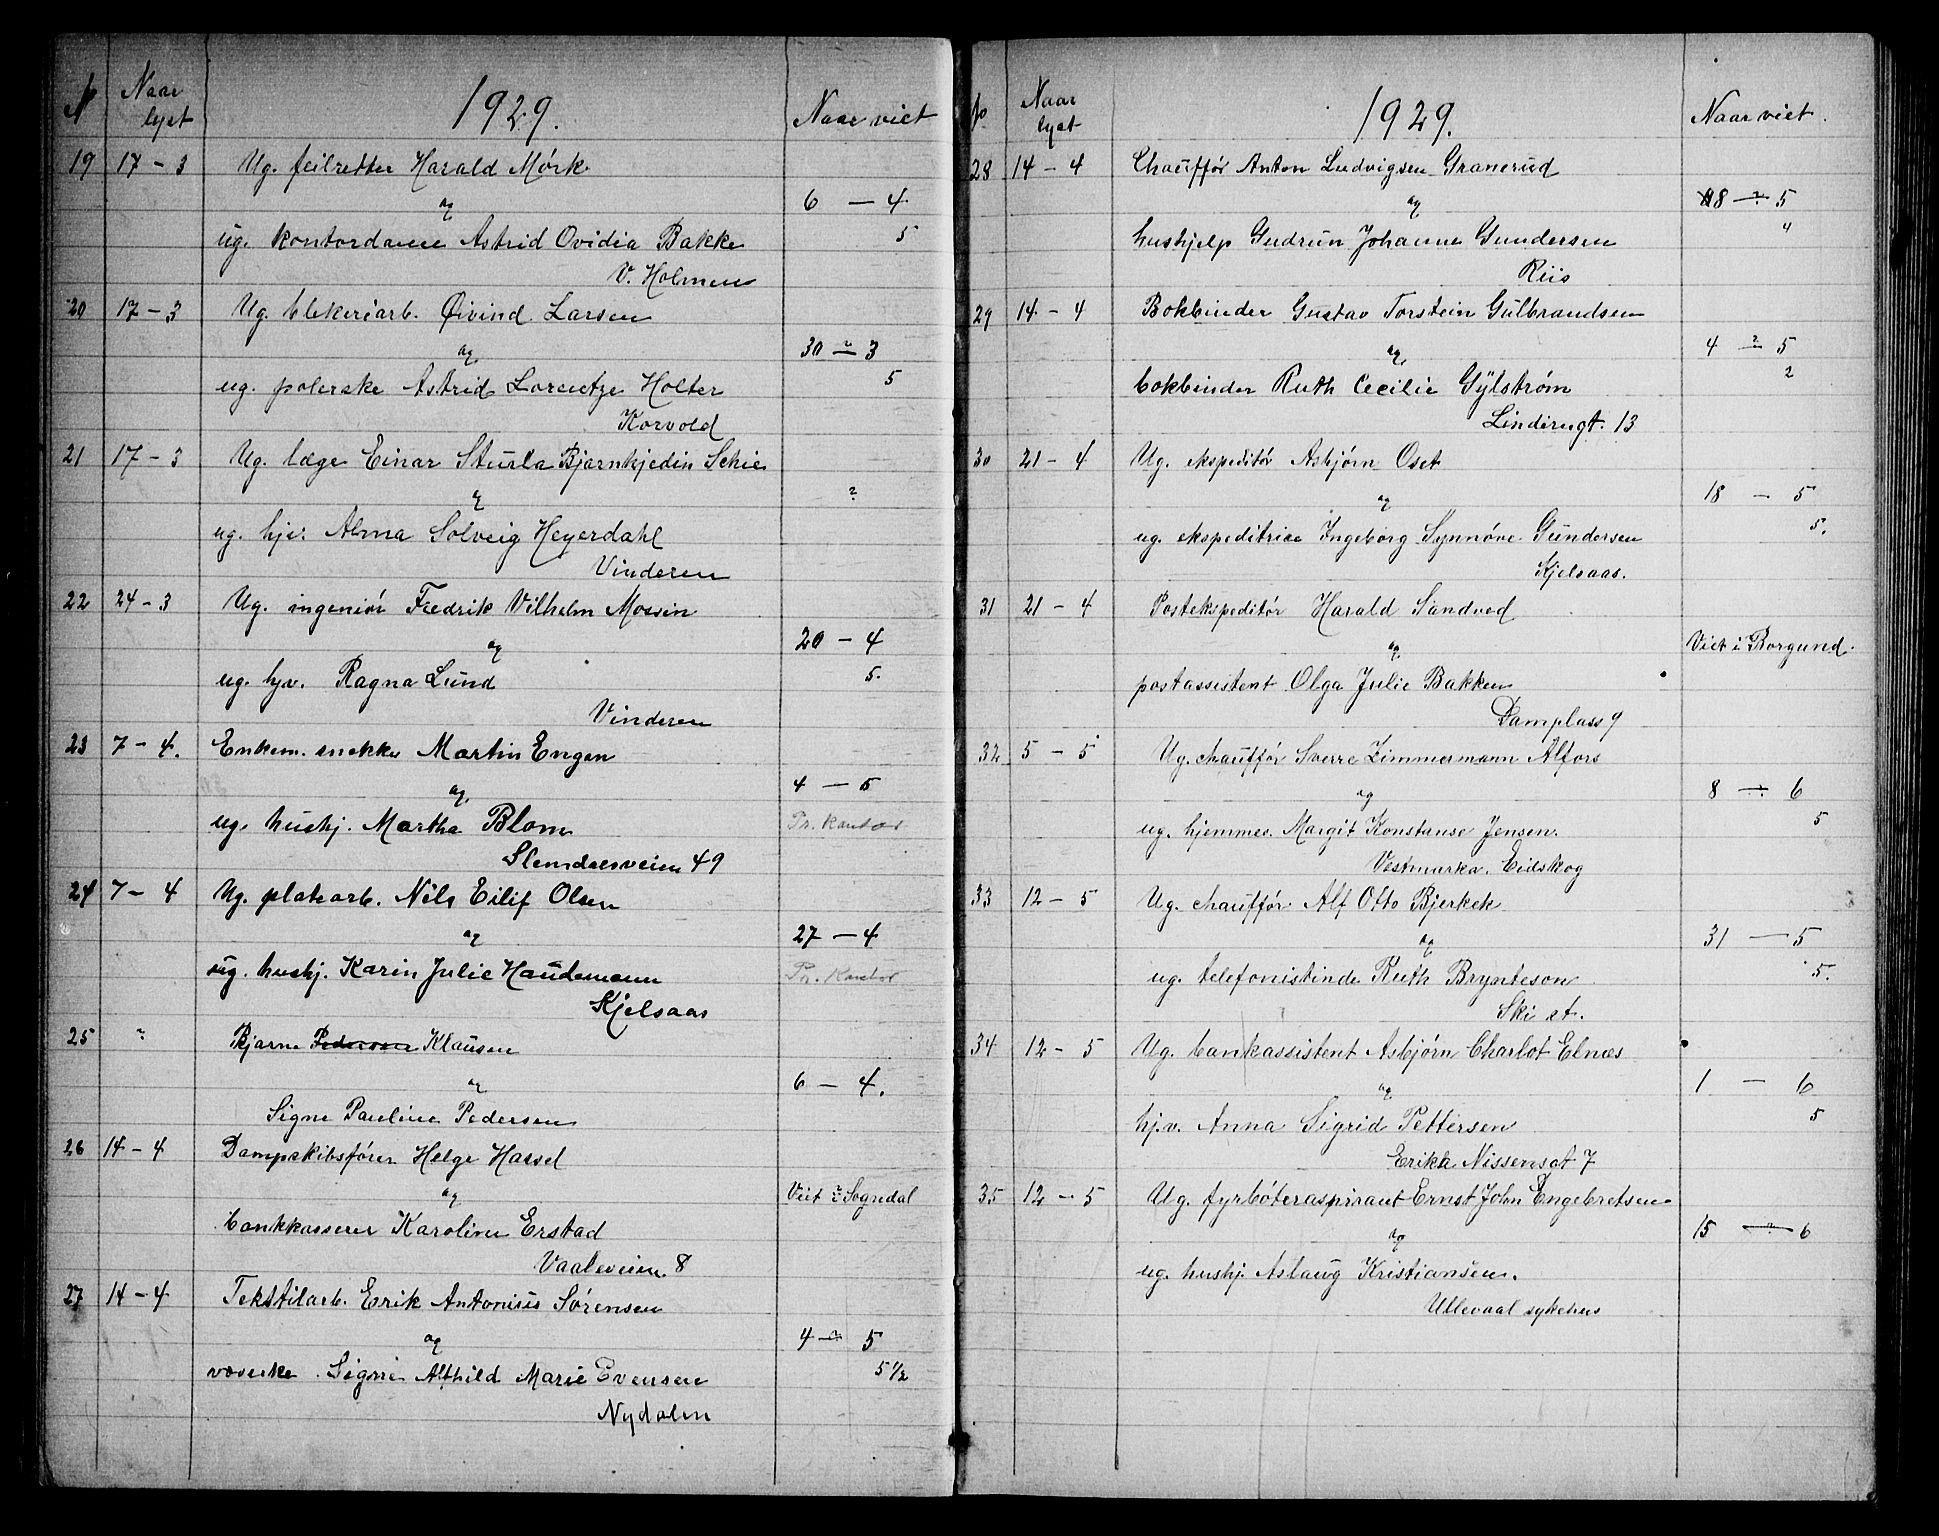 № Naar lyst 1929. Naar viet
19 17 - 3 Ug. feilretter Harald Mørk
og 6 - 4.
ug. kontordame Astrid Ovidia Bakke 5
V. Holmen
20 17 - 3 Ug. blekeriarb. Øivind Larsen
og 30 - 3
ug. polerske Astrid Lorentze Holter 5
Korvold
21 17 - 3 Ug. læge Einar Sturla Bjarnhjedin Schie
og ?
ug. hjv. Alma Solveig Heyerdahl
Vinderen
22 24 - 3 Ug. ingeniør Fredrik Vilhelm Mossin
og 20 - 4
ug. hjv. Ragna Lund 5.
Vinderen
23 7 - 4. Enkem. snekker Martin Engen
og 4 - 5
ug. hushj. Martha Blom Pr. kontor
Slemdalsveien 49
24 7 - 4 Ug. platearb. Nils Eilif Olsen
og 27 - 4
ug. hushj. Karin Julie Haudemann Pr. Kontor
Kjelsaas
25 ? Bjarne Pedersen Klausen
og 6 - 4.
Signe Pauline Pedersen
26 14 - 4 Dampskibsfører Helge Hassel
og Viet i Sogndal
bankkasserer Karoline Erstad
Vaaleveien 8
27 14 - 4 Tekstilarb. Erik Antonius Sørensen
og 4 - 5
væverske Signe Alfhild Marie Evensen 5 1/2
Nydalen
№ Naar lyst 1929. Naar viet.
28 14 - 4 Chauffør Anton Ludvigsen Granerud
og 18 - 5
hushjelp Gudrun Johanne Gundersen 4
Riis
29 14 - 4 Bokbinder Gustav Torstein Gulbrandsen
og 4 - 5
bokbinder Ruth Cecilie Gylstrøm 2
Linderugt. 13
30 21 - 4 Ug. ekspeditør Asbjørn Oset
og 18 - 5
ug. ekspeditrice Ingeborg Synnøve Gundersen 5.
Kjelsaas.
31 21 - 4 Postekspeditør Harald Sandved
og Viet i Borgund.
postassistent Olga Julie Bakken
Damplass 9
32 5 - 5 Ug. chauffør Sverre Zimmermann Alfors
og 8 - 6
ug. hjemmev. Margit Konstanse Jensen. 5
Vestmarka. Eidskog
33 12 - 5 Ug. chauffør Alf Otto Bjerkek
og 31 - 5
ug. telefonistinde Ruth Brynteson 5.
Ski st.
34 12 - 5 Ug. bankassistent Asbjørn Charlot Elnæs
og 1 - 6
hj.v. Anna Sigrid Pettersen 5
Erika Nissensgt 7
35 12 - 5 Ug. fyrbøteraspirant Ernst John Engebretsen
og 15 - 6
ug. hushj. Aslaug Kristiansen.
Ullevaal sykehus